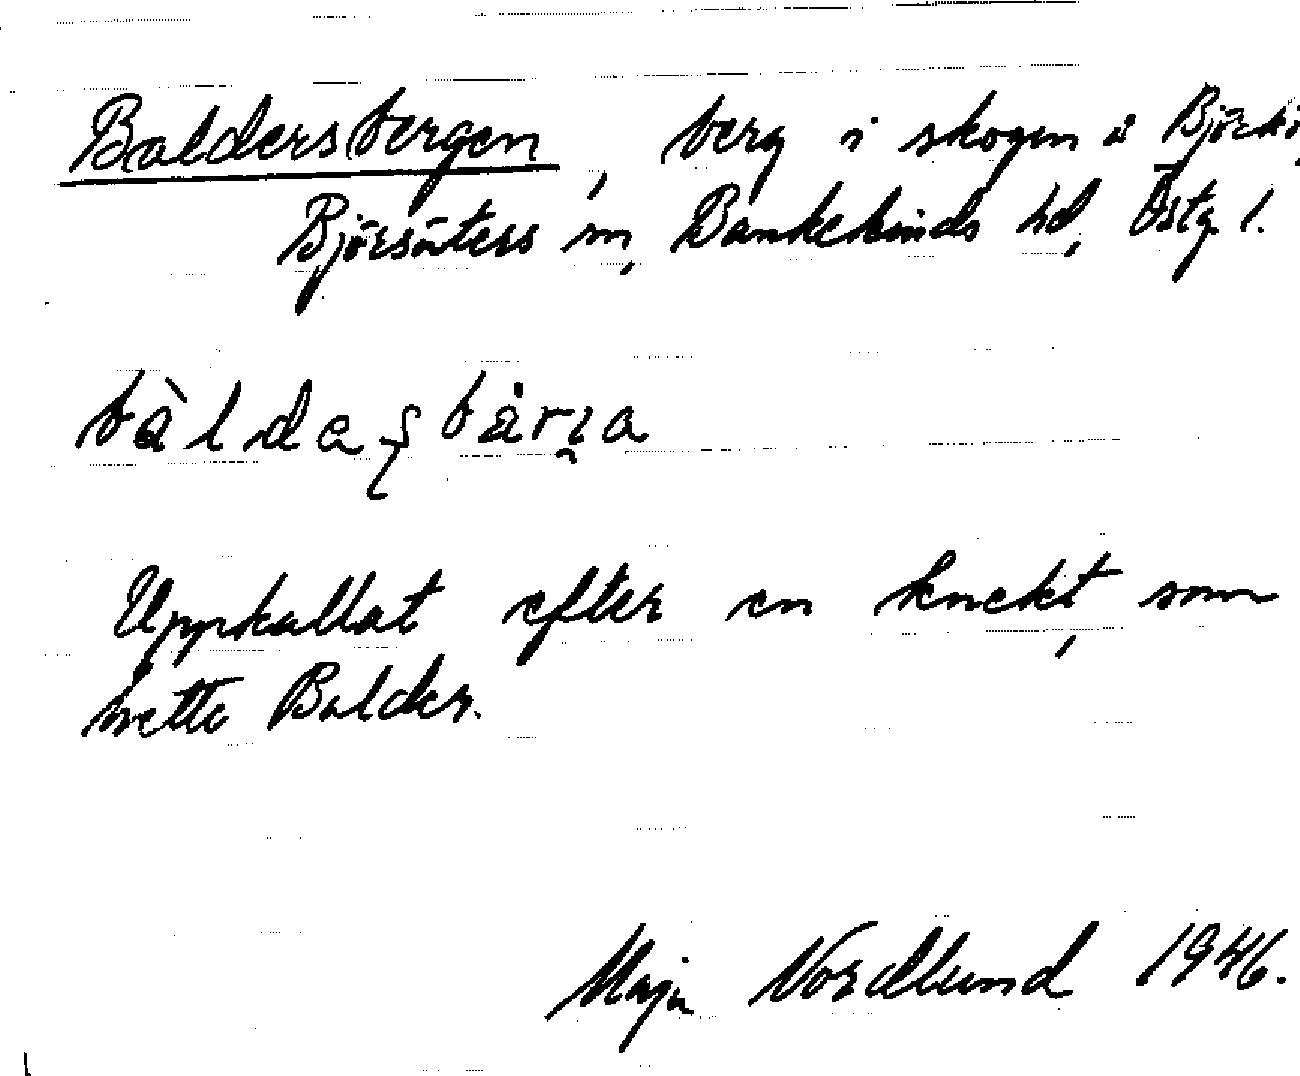 Baldersbergen, berg i skogen å Björkö,
Björsäters sn, Bankekinds hd, Östg. l.
bàldaşbärı̯a
Uppkallat efter en knekt, som
hette Balder.
Maja Nordlund 1946.